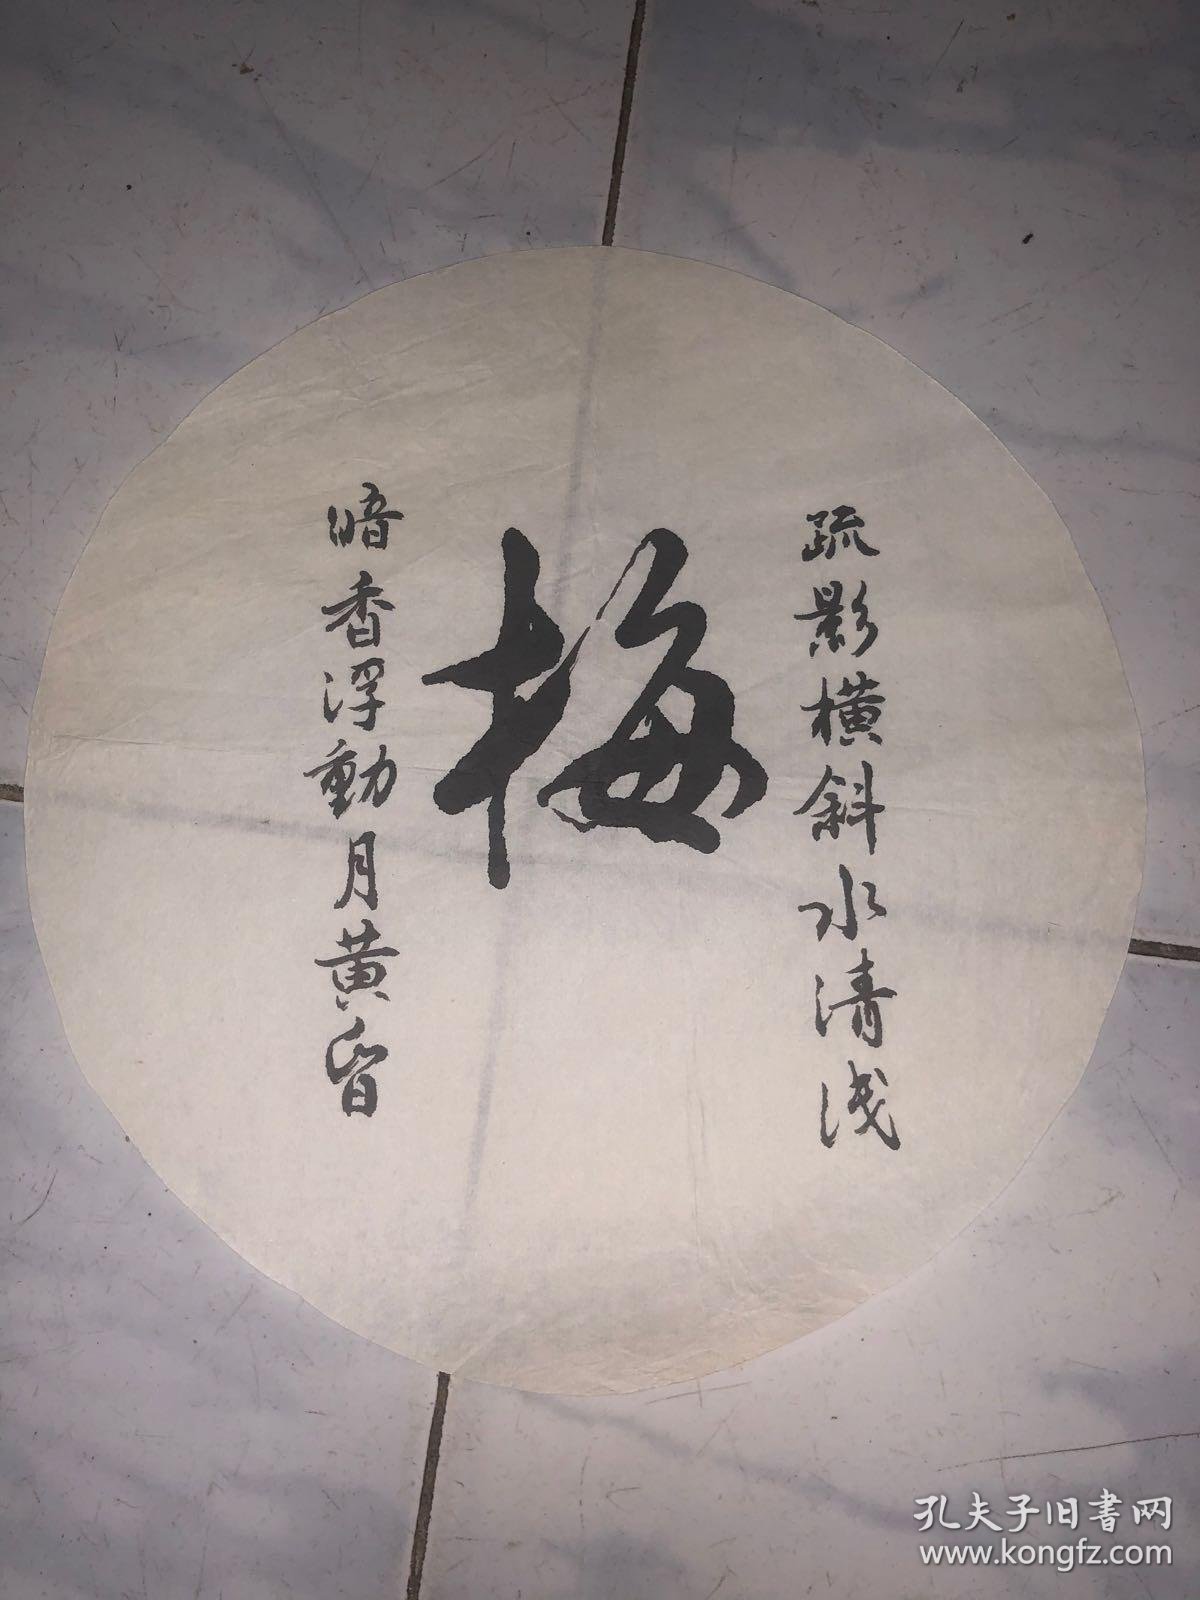 疏影橫斜水清浅
梅
暗香浮動月黄昏
孔夫子旧書网
www.kongfz.com